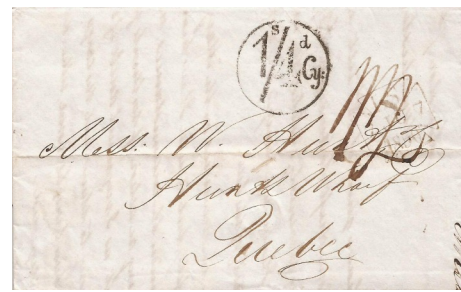 1s/4d Cy:
Mess: W. Hunt &
Hunts Wharf
Quebec